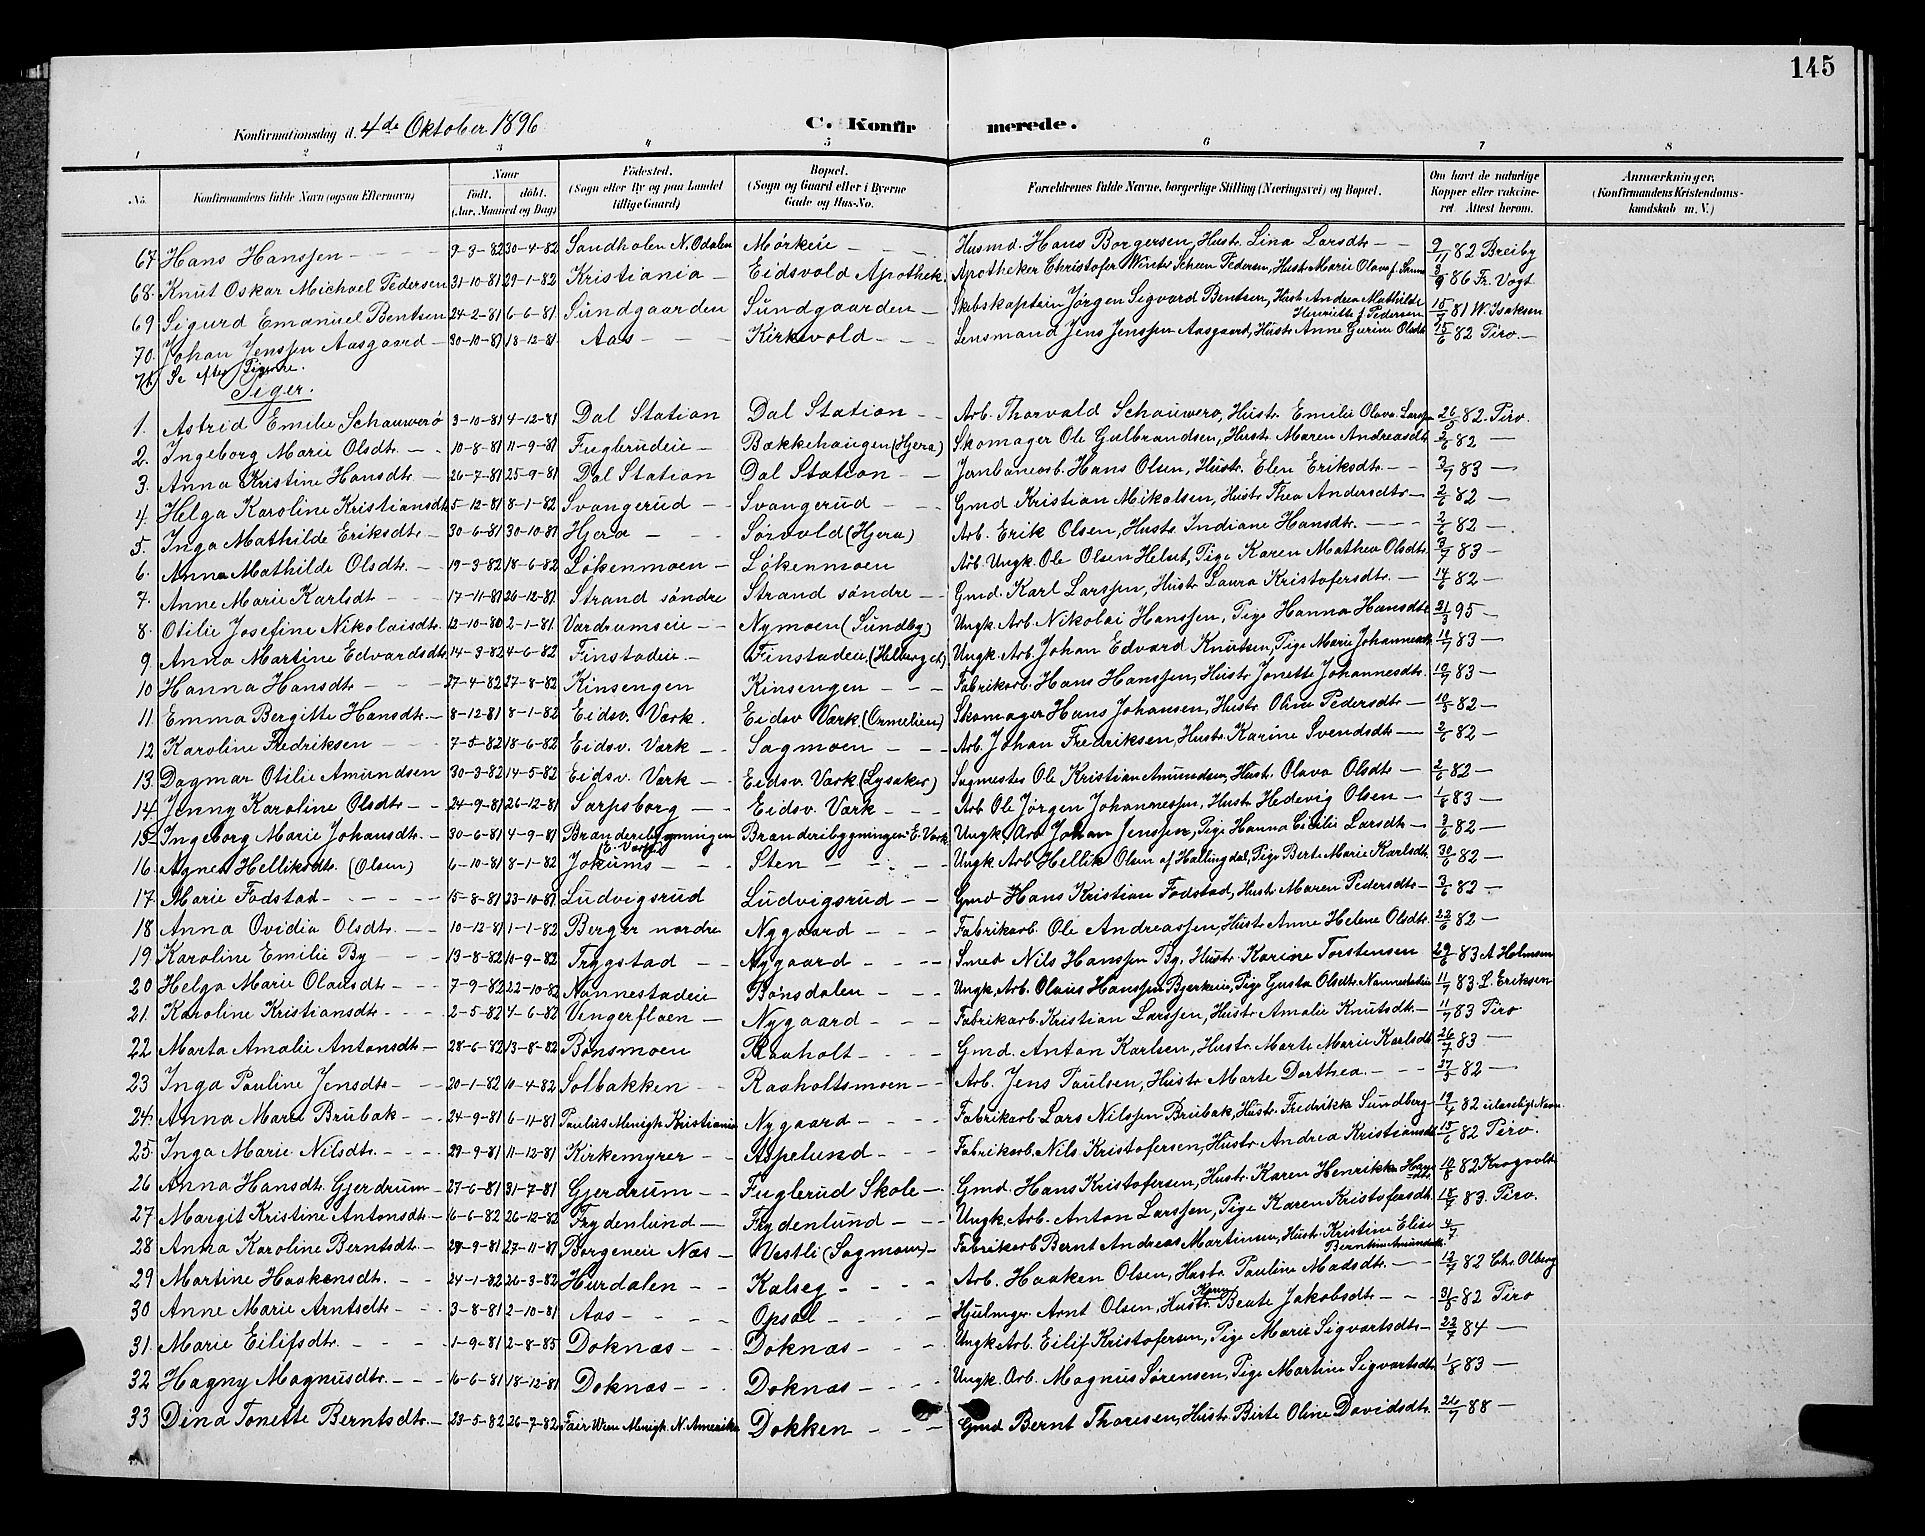 145
Konfirmationsdag d. 4de Oktober 1896 C. Konfirmerede.
1 2 3 4 5 6 7 8
No. Konfirmandens fulde Navn (ogsaa Efternavn) Naar født. døbt. (Aar, Maaned og Dag) Fødested. (Sogn eller By og paa Landet tillige Gaard) Bopæl. (Sogn og Gaard eller i Byerne Gade og Hus-No. Forældrenes fulde Navne, borgerlige Stilling (Næringsvei) og Bopæl. Om havt de naturlige Kopper eller vakcineret. Attest herom. Anmerkninger. (Konfirmandens Kristendomskundskab m. V.)
67 Hans Hanssen 9-3-82 30-4-82 Sandholen N. Odalen Mørkeie Husmd. Hans Borgersen, Hustr. Lina Larsdtr. 9/11 82 Breiby
68. Knut Oskar Michael Pedersen 31-10-81 29-1-82 Kristiania Eidsvold Apothek. Apotheker Christofer Winter Scheen Pedersen, Hustr. Marie Olava f. 3/9 86 Fr. Vogt
69 Sigurd Emanuel Bentsen 24-2-81 6-6-81 Sundgaarden Sundgaarden Skibskaptein Jørgen Sigvard Bentsen, Hustr. Andrea Mathilde Henriette f. Pedersen 15/7 81 W. Isaksen
70. Johan Jenssen Aasgaard 30-10-81 18-12-81 Aas Kirkevold Lensmand Jens Jenssen Aasgaard, Hustr. Anne Gurine Olsdtr. 15/6 82 Piro
71) Se efter Pigerne.
Piger.
1. Astrid Emilie Schauwerø 3-10-81 4-12-81 Dal Station Dal Station Arb. Thorvald Schauwero, Hustr. Emilie Olava Larssen 26/5 82 Piro.
2. Ingeborg Marie Olsdtr. 10-8-81 11-9-81 Fuglerudeie Bækkehaugen (Hjera) Skomager Ole Gulbrandsen, Hustr. Maren Andreasdtr. 2/6 82 —
3. Anna Kristine Hansdtr. 26-7-81 25-9-81 Dal Station Dal Station Jernbanearb. Hans Olsen, Hustr. Elen Eriksdtr. 3/7 83 —
4. Helga Karoline Kristiansdtr. 5-12-81 8-1-82 Svangerud Svangerud Gmd Kristian Mikalsen, Hustr. Thea Andersdtr. 2/6 82 —
5. Inga Mathilde Eriksdtr. 30-6-81 30-10-81 Hjera Sørvold (Hjera) Arb. Erik Olsen, Hustr. Indiane Hansdtr. 2/6 82 —
6. Anna Mathilde Olsdtr. 19-3-82 18-6-82 Løkenmoen Løkenmoen Arb. Ungk. Ole Olsen Helset, Pige Karen Mathea Olsdtr. 3/7 83 —
7. Anne Marie Karlsdt 17-11-81 26-12-81 Strand søndre Strand søndre Gmd. Karl Larssen, Hustr. Laura Kristofersdtr. 14/6 82 —
8. Otilie Josefine Nikolaisdtr. 12-10-80 2-1-81 Vardrumseie Nymoen (Sundby) Ungk. Arb. Nikolai Hanssen, Pige Hanna Hansdtr. 21/3 95 —
9. Anna Martine Edvardsdtr. 14-3-82 4-6-82 Finstadeie Finstadeie. (Helberget) Ungk. Arb. Johan Edvard Knutsen, Pige Marie Johannesdtr. 18/7 83 —
10 Hanna Hansdtr. 27-4-82 27-8-82 Kinsengen Kinsengen Fabrikarb. Hans Hanssen, Hustr. Jonette Johannesdtr. 10/7 83 —
11. Emma Bergitte Hansdtr. 8-12-81 8-1-82 Eidsv. Værk. Eidsv. Værk (Ormelien) Skomager Hans Johansen, Hustr. Oline Pedersdtr. 10/3 82 —
12 Karoline Fredriksen 7-5-82 18-6-82 Eidsv. Værk Sagmoen Arb. Johan Fredriksen, Hustr. Karine Svendsdtr. 2/6 82 —
13. Dagmar Otilie Amundsen 30-3-82 14-5-82 Eidsv. Værk Eidsv. Værk (Lysaker) Sagmester Ole Kristian Amundsen, Hustr. Olava Olsdtr. 2/6 82 —
14. Jenny Karoline Olsdtr. 24-9-81 26-12-81 Sarpsborg Eidsv. Værk Arb. Ole Jørgen Johannessen, Hustr. Hedevig Olsen 1/8 83 —
15. Ingeborg Marie Johansdtr. 30-6-81 4-9-81 Branderibygningen (E. Værk) Branderibygningen E. Værk Ungk. Arb. Johan Jenssen, Pige Hanna Cecilie Larsdtr. 3/6 82 —
16. Agnes Helliksdtr. (Olsen) 6-10-81 8-1-82 Jokums Sten Ungk. Arb. Hellik Olsen af Hallingdal, Pige Berte Marie Karlsdtr. 30/6 82 —
17. Marie Fodstad 15-8-81 23-10-81 Ludvigsrud Ludvigsrud Gmd Hans Kristian Fodstad, Hustr. Maren Pedersdtr. 3/6 82 —
18 Anna Ovidia Olsdtr. 10-12-81 1-1-82 Berger nordre Nygaard Fabrikarb. Ole Andreassen, Hustr. Anne Helene Olsdtr. 22/6 82 —
19 Karoline Emilie By 13-8-82 10-9-82 Trygstad Nygaard Smed Nils Hanssen By, Hustr. Karine Torstensen 29/6 83 A Holmsen
20 Helga Marie Olausdtr. 7-9-82 22-10-82 Nannestadeie Bønsdalen Ungk. Arb. Olaus Hanssen Bjerkeeie, Pige Gusta Olsdtr. Nannestadeie 11/7 83 L. Eriksen
21. Karoline Kristiansdtr. 2-5-82 4-6-82 Vengerfloen Nygaard Fabrikarb. Kristian Larssen, Hustr. Amalie Knutsdtr. 11/7 83 Piro
22 Marta Amalie Antonsdtr. 28-6-82 13-8-82 Bønsmoen Raaholt Gmd. Anton Karlsen, Hustr. Marte Marie Karlsdtr. 26/7 83 —
23 Inga Pauline Jensdtr. 20-1-82 10-4-82 Solbakken Raaholtsmoen Arb. Jens Paulsen, Hustr. Marte Dorthea. 27/5 82 —
24. Anna Marie Brubak 24-9-81 6-11-81 Paulus Menigh. Kristiania Nygaard Fabrikarb. Lars Nilssen Brubak, Hustr. Fredrikke Sundberg 19/4 82 ulæseligt Navn
25. Inga Marie Nilsdtr. 29-9-81 11-12-81 Kirkemyrer Aspelund Fabrikarb. Nils Kristofersen, Hustr. Andrea Kristiansdtr. 15/6 82 Piro.
26 Anna Hansdtr. Gjerdrum 27-6-81 31-7-81 Gjerdrum Fuglerud Skole Gmd. Hans Kristofersen, Hustr. Karen Henrikke Hansdtr. 10/8 82 Krogvold
27 Margit Kristine Antonsdtr. 6-6-82 26-12-82 Frydenlund Frydenlund Ungk. Arb. Anton Larssen, Pige Karen Kristofersdtr. 18/7 83. Piro.
28 Anna Karoline Berntsdtr. 29-9-81 27-11-81 Borgeneie Næs Vestli (Sagmoen) Fabrikarb Bernt Andreas Martinsen, Hustr. Kristine Elise Berntine Amundsdtr. 4/7
29 Martine Haakensdtr. 24-1-82 26-3-82 Hurdalen Kalseg Arb. Haaken Olsen, Hustr. Pauline Madsdtr. 12/7 82 Chr. Olberg
30 Anne Marie Arntsdtr. 3-8-81 2-10-81 Aas Opsal Hjulmgr. Arnt Olsen, Hustr. Karen Beate Jakobsdtr. 31/5 82 Piro
31. Marie Eilifsdtr. 1-9-81 2-8-85 Doknæs Doknæs Ungk Arb. Eilif Kristofersen, Pige Marie Sigvartsdtr. 22/7 84 —
32 Hagny Magnusdtr. 16-6-81 18-12-81 Doknæs Doknæs Ungk. Arb. Magnus Sørensen, Pige Martine Sigvartsdtr. 1/8 83 —
33 Dina Tonette Berntsdtr. 23-5-82 26-7-82 Fair Menigh. N. Amerika Dokken Gmd Bernt Thoresen, Hustr. Birte Oline Davidsdtr. 26/7 88 —